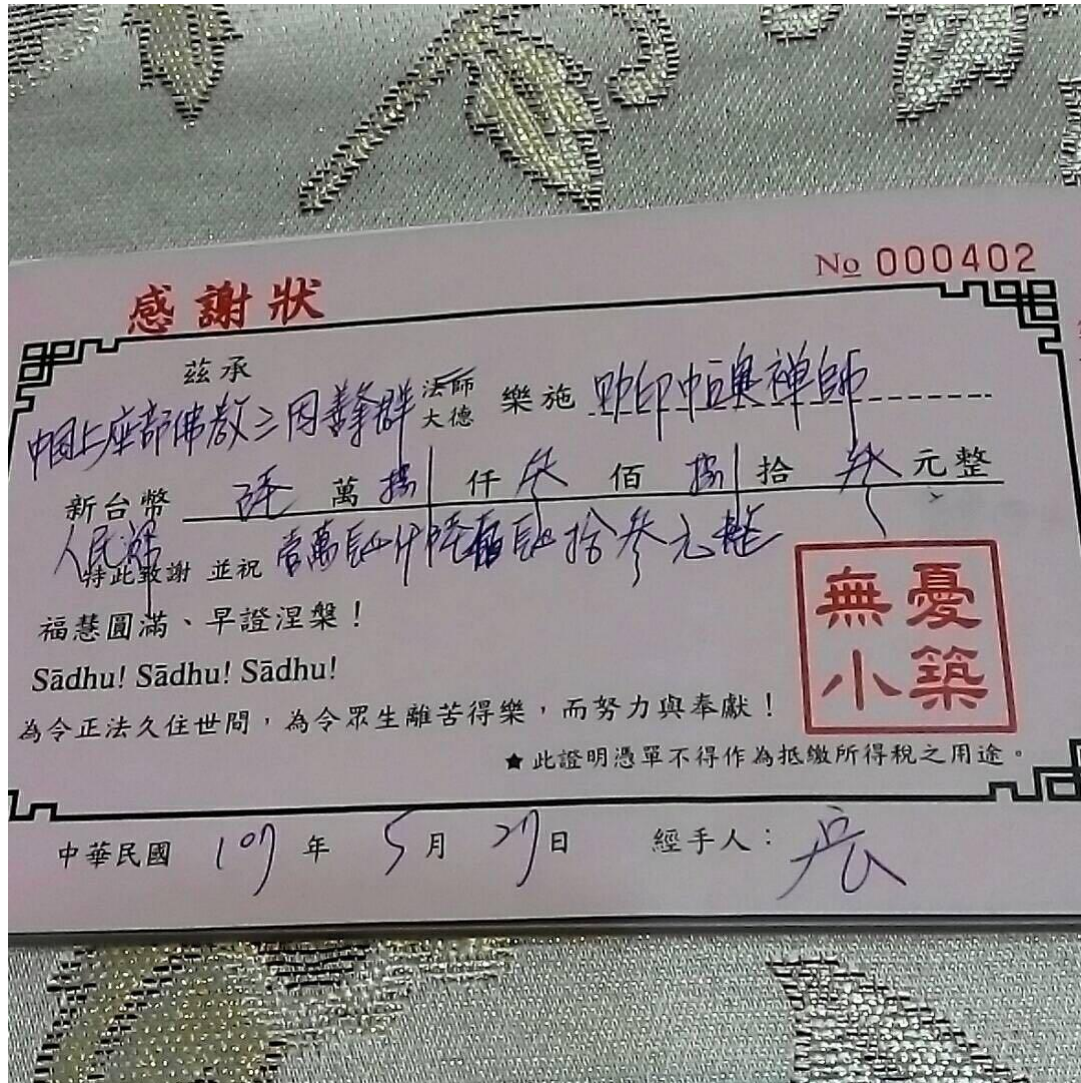 感謝狀
No 000402
茲承
中国上座部佛教三因善群 法師 大德 樂施 助印 禪師
新台幣 陸 萬 捌 仟 柒 佰 捌 拾 叁 元整
人民幣 壹萬 仟陸佰 拾參元整
特此致謝 並祝
福慧圓滿、早證涅槃!
Sādhu! Sādhu! Sādhu!
為令正法久住世間,為令眾生離苦得樂,而努力與奉獻!
無憂
小築
★此證明憑單不得作為抵繳所得稅之用途。
中華民國 107 年 5 月 27 日 經手人: